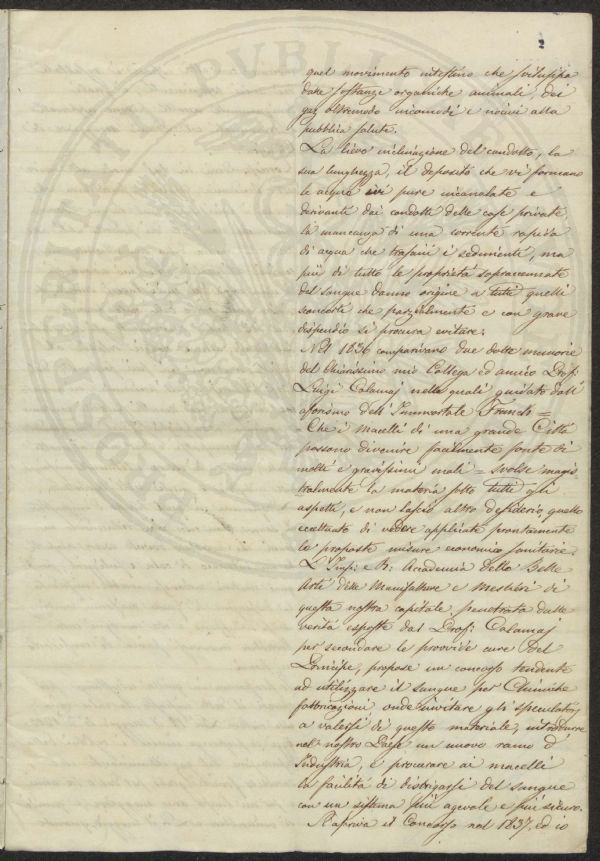 2
quel movimento intestino che sviluppa
dalle sostanze organiche animali, dei
gaz oltremodo incomodi e nocivi alla
pubblica salute.
La lieve inclinazione del condotto, la
sua lunghezza, il deposito che vi formano
le acque ivi pure incanalate e
derivanti dai condotti delle case private,
la mancanza di una corrente rapida
di acqua che trascini i sedimenti, ma
più di tutto le proprietà sopraccennate
del sangue danno origine a tutti quelli
sconcerti che parzialmente e con grave
dispendio si procura evitare.
Nel 1836 comparivano due dotte memorie
del Chiarissimo mio Collega ed amico Prof:
Luigi Calamaj nelle quali guidato dall'
aforismo dell'Immortale Franch =
= Che i macelli di una grande Città
possono divenire facilmente fonte di
molti e gravissimi mali = svolse magis
tralmente la materia sotto tutti gli
aspetti, e non lascio altro desiderio, quello
eccettuato di vedere applicate prontamente
le proposte misure economico sanitarie
L'Imp: e R: Accademia delle Belle
Arti delle Manifatture e Mestieri di
questa nostra capitale, penetrata dalle
verità esposte dal Prof: Calamaj
per secondare le provvide cure del
Principe, propose un concorso tendente
ad utilizzare il sangue per Chimiche
fabbricazioni, onde invitare gli speculatori
a valersi di questo materiale, introdurre
nel nostro Paese un nuovo ramo d'
Industria, e procurare ai macelli
la facilità di distrigarsi del sangue
con un sistema più agevole e più sicuro.
S'apriva il Concorso nel 1837, ed io